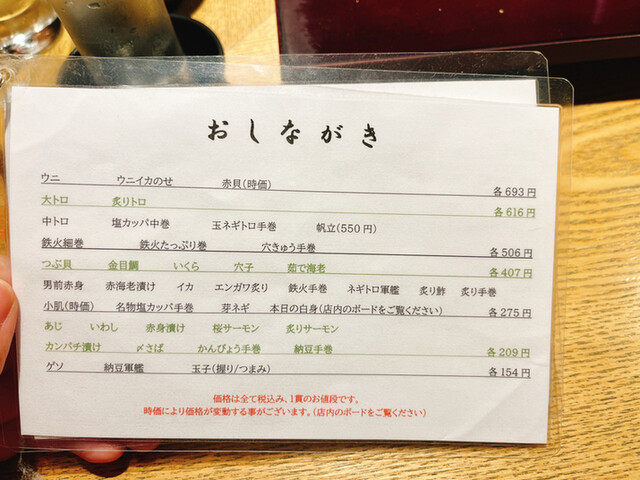 おしながき
ウニ ウニイカのせ 赤貝(時価) 各693円
大トロ 炙りトロ 各616円
中トロ 塩カッパ中巻 玉ネギトロ手巻 帆立(550円)
鉄火細巻 鉄火たっぷり巻 穴きゅう手巻 各506円
つぶ貝 金目鯛 いくら 穴子 茹で海老 各407円
男前赤身 赤海老漬け イカ エンガワ炙り 鉄火手巻 ネギトロ軍艦 炙り鯡 炙り手巻
小肌(時価) 名物塩カッパ手巻 芽ネギ 本日の白身(店内のボードをご覧ください) 各275円
あじ いわし 赤身漬け 桜サーモン 炙りサーモン
カンパチ漬け 〆さば かんぴょう手巻 納豆手巻 各209円
ゲソ 納豆軍艦 玉子(握り/つまみ) 各154円
価格は全て税込み、1貫のお値段です。
時価により価格が変動する事がございます。(店内のボードをご覧ください)